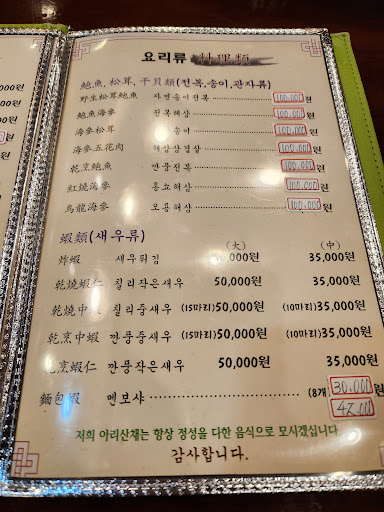 요리류 料理類
鮑魚, 松茸, 干貝類(전복,송이,관자류)
野生松茸鮑魚 자연송이전복 100,000원
鮑魚海參 전복해삼 100,000원
海參松茸 송이 100,000원
海參五花肉 해삼삼겹살 100,000원
乾烹鮑魚 깐풍전복 100,000원
紅燒海參 홍쇼해삼 100,000원
烏龍海參 오룡해삼 100,000원
蝦類(새우류) (大) (中)
炸蝦 새우튀김 0,000원 35,000원
乾燒蝦仁 칠리작은새우 50,000원 35,000원
乾燒中蝦 칠리중새우 (15마리)50,000원 (10마리)35,000원
乾烹中蝦 깐풍중새우 (15마리)50,000원 (10마리)35,000원
乾烹蝦仁 깐풍작은새우 50,000원 35,000원
麵包蝦 멘보샤 (8개) 30,000원
42,000
저희 아리산채는 항상 정성을 다한 음식으로 모시겠습니다
감사합니다.
,000원
000원
원
원